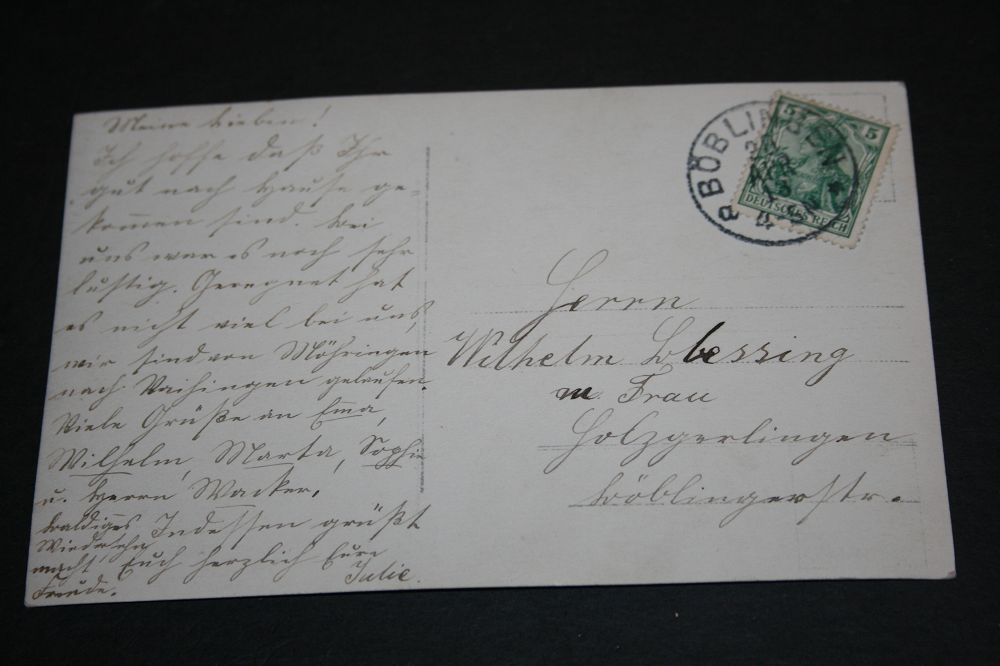 Meine Lieben!
Ich hoffe daß Ihr
gut nach Hause ge-
kommen sind. Bei
uns war es noch sehr
lustig. Geregnet hat
es nicht viel bei uns,
wir sind von Möhringen
nach Vaihingen gelaufen.
Viele Grüße an Emma,
Wilhelm, Marta, Sophie
u. Herrn Wacker.
Indessen grüßt
Euch herzlich Eure
Julie.
Baldiges
Wiedersehn
macht
Freude.
BÖBLINGEN
5 5
DEUTSCHES REICH
Herrn
Wilhelm Blessing
m. Frau
Holzgerlingen
Böblingerstr.